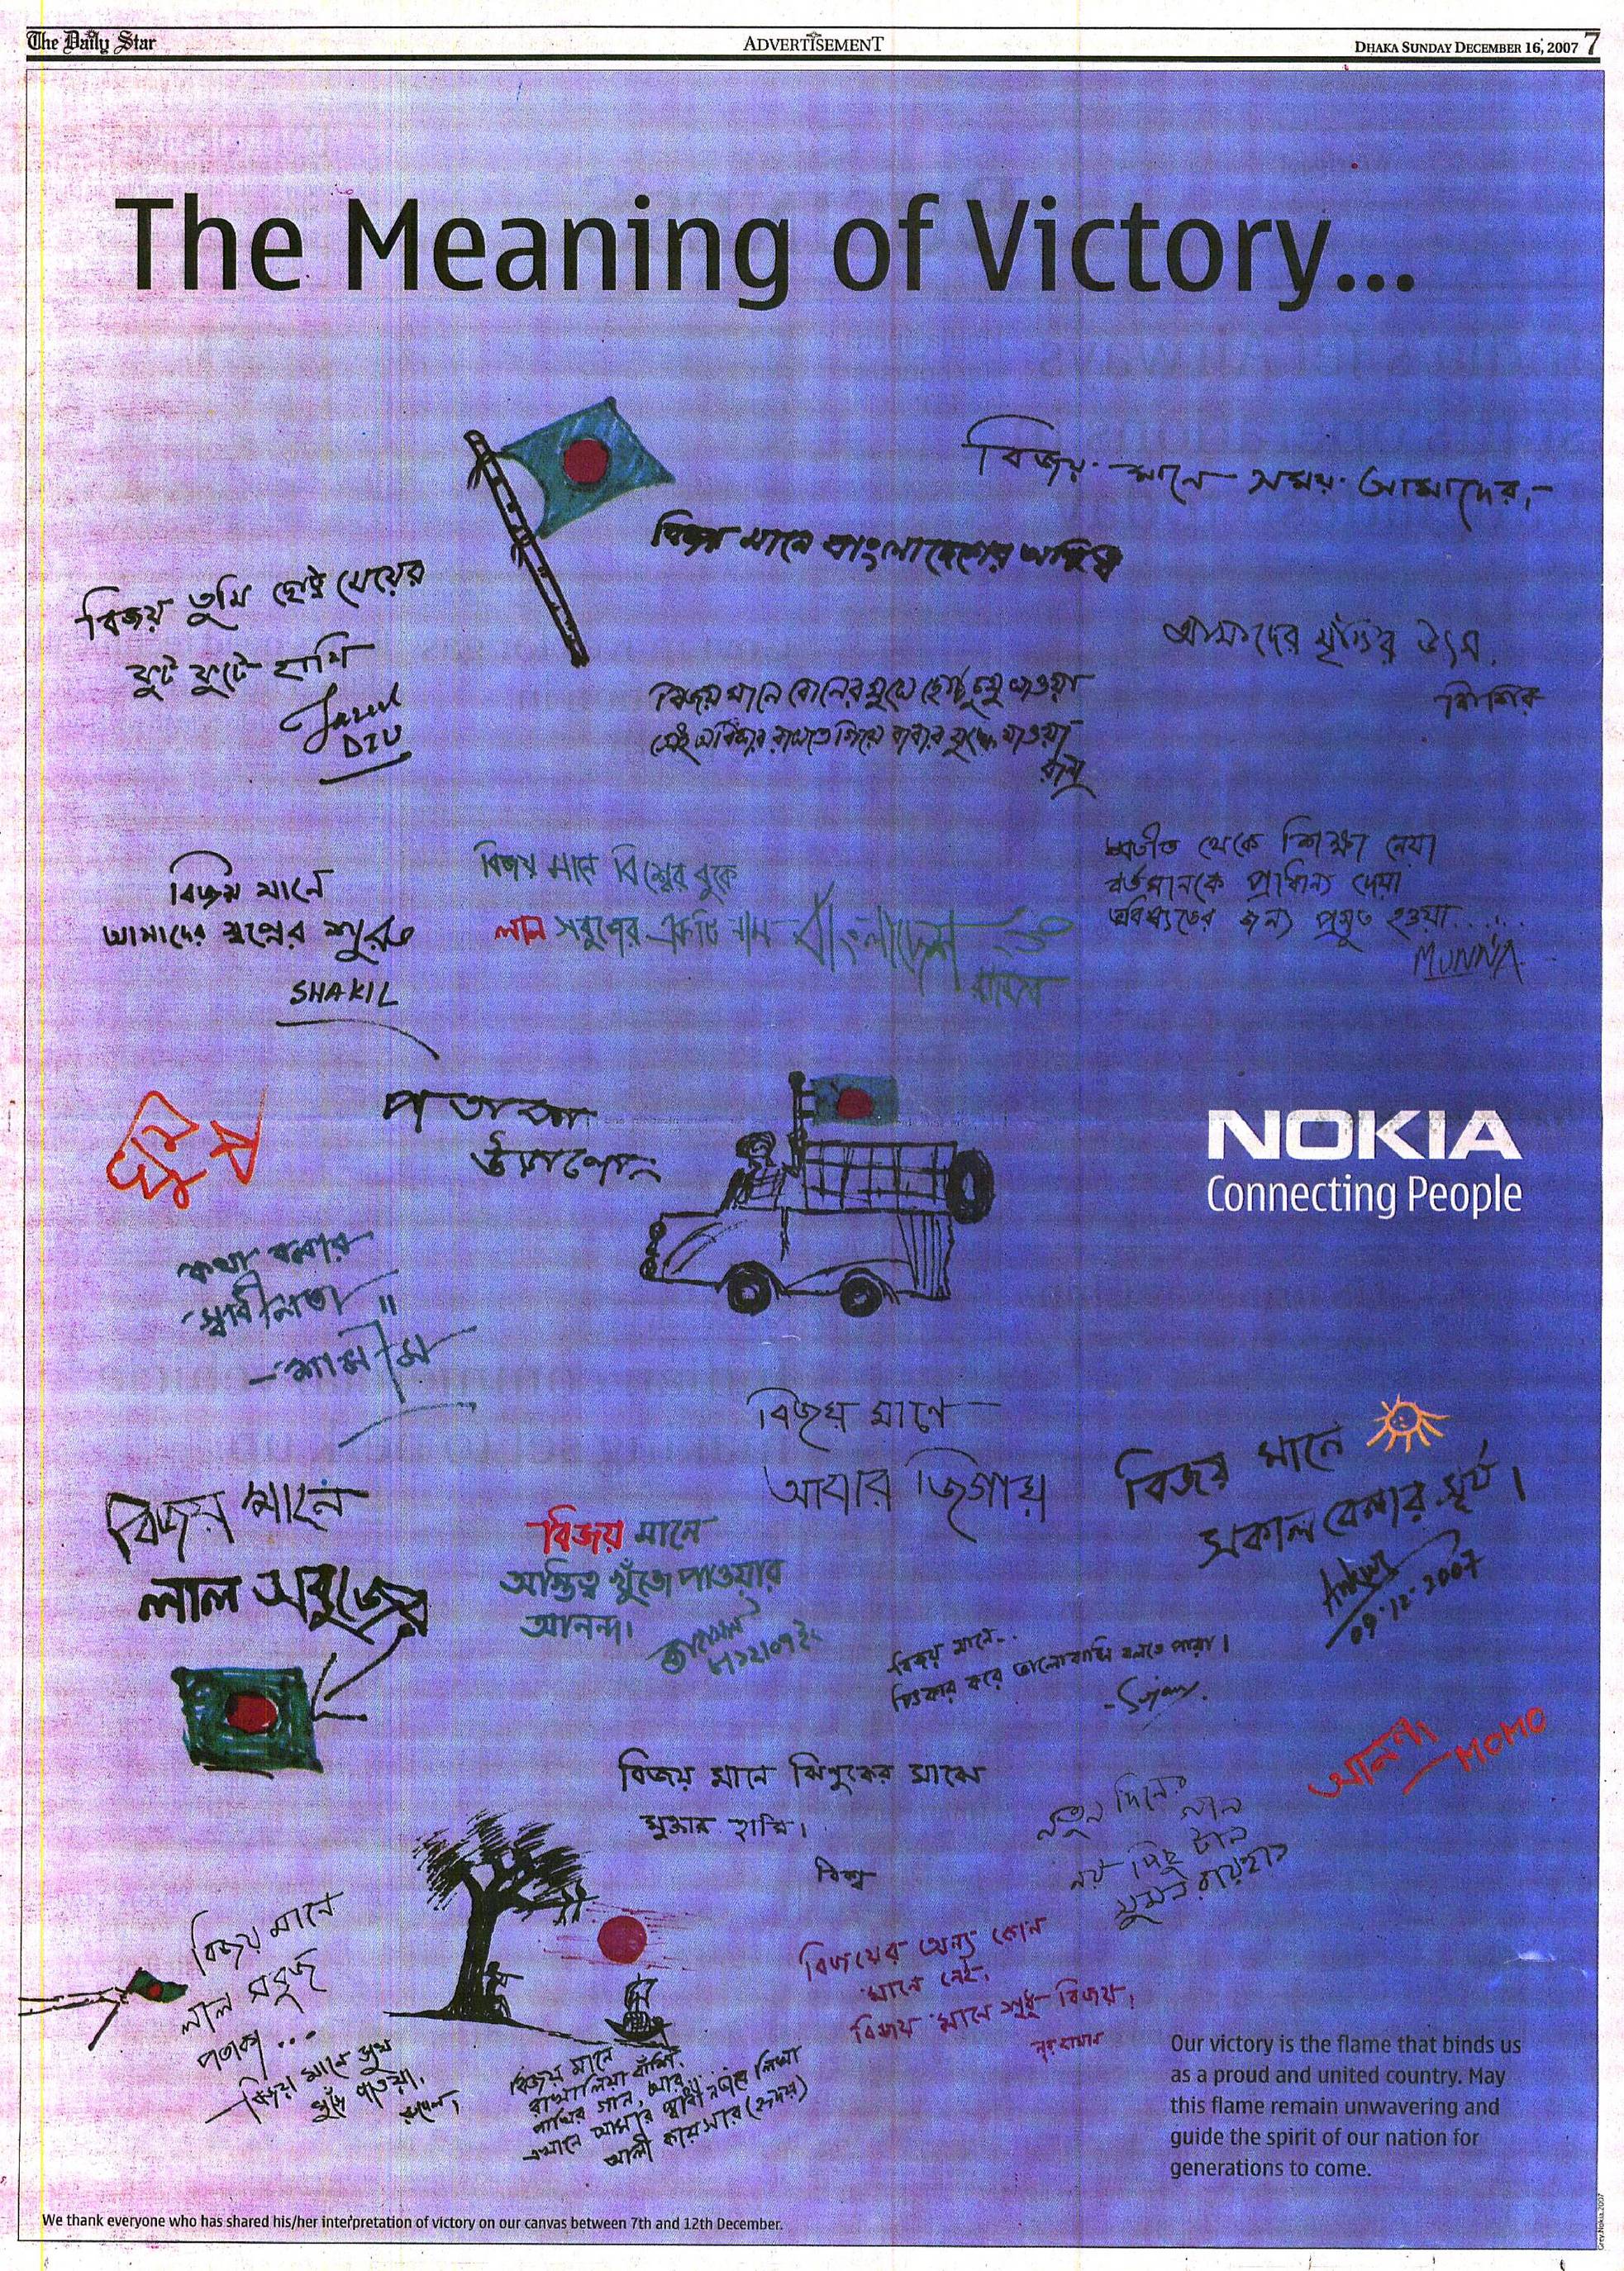 The Daily Star
ADVERTISEMENT
DHAKA SUNDAY DECEMBER 16, 2007 7
The Meaning of Victory...
বিজয় মানে সময় আমাদের,
বিজয় মানে বাংলাদেশের অস্তিত্ব
বিজয় তুমি ছোট্ট মেয়ের
ফুট ফুটে হাসি
DIU
আমাদের মুক্তির উৎস.
শিশির
বিজয় মানে বোনের মুখে ছোট্ট চুমু খাওয়া
সেই অধিকার রাখতে গিয়ে বাবার যুদ্ধে যাওয়া
বিজয় মানে
আমাদের স্বপ্নের শুরু
SHAKIL
বিজয় মানে বিশ্বের বুকে
লাল সবুজের একটি নাম বাংলাদেশ
অতীত থেকে শিক্ষা নেয়া
বর্তমানকে প্রাধান্য দেয়া
ভবিষ্যতের জন্য প্রস্তুত হওয়া.....
MUNNA
পতাকা
NOKIA
Connecting People
কথা বলার
স্বাধীনতা ॥
- শামীম
বিজয় মানে
আবার জিগায়
বিজয় মানে
সকাল বেলার সূর্য।
09-12-2007
বিজয় মানে
লাল সবুজের
বিজয় মানে
অস্তিত্ব খুঁজে পাওয়ার
আনন্দ।
বিজয় মানে...
চিৎকার করে ভালোবাসি বলতে পারা।
- Sujan.
আনন্দ
MOMO
বিজয় মানে ঝিনুকের মাঝে
মুক্তার হাসি।
নতুন দিনের
বিজয় মানে
লাল সবুজ
পতাকা ...
বিজয় মানে সুখ
খুঁজে পাওয়া.
বিজয়ের অন্য কোন
মানে নেই.
বিজয় মানে শুধু বিজয়।
বিজয় মানে
রাখালিয়া বাঁশি,
পাখির গান, আর
এখানে আমার স্বাধীনতার লিখা
আলী কায়সার (হৃদয়)
Our victory is the flame that binds us
as a proud and united country. May
this flame remain unwavering and
guide the spirit of our nation for
generations to come.
We thank everyone who has shared his/her interpretation of victory on our canvas between 7th and 12th December.
Grey.Nokia.2007